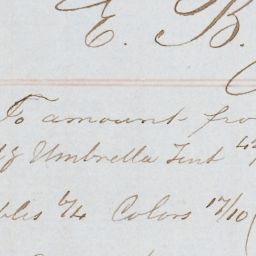 E. B.
To amount fro
Umbrella Tent
bles 6/4 Colors 17/10